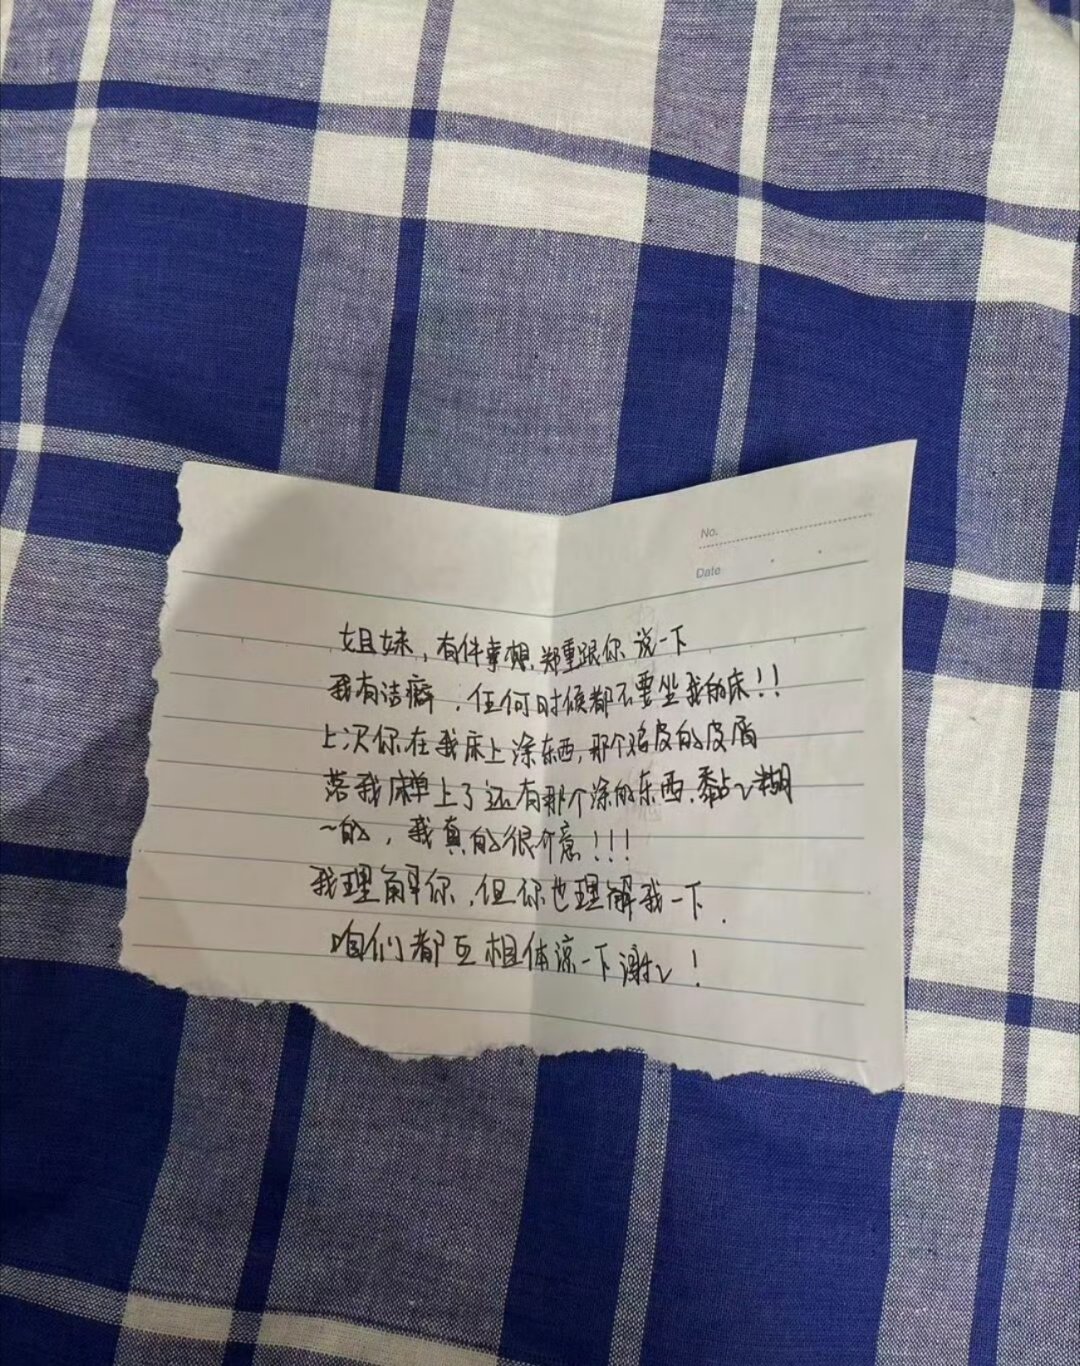 No.
Date
姐妹，有件事想郑重跟你说一下
我有洁癖，任何时候都不要坐我的床！！
上次你在我床上涂东西，那个鸡皮的皮屑
落我床单上了还有那个涂的东西，黏〻糊
〻的，我真的很介意！！！
我理解你，但你也理解我一下．
咱们都互相体谅一下谢〻！